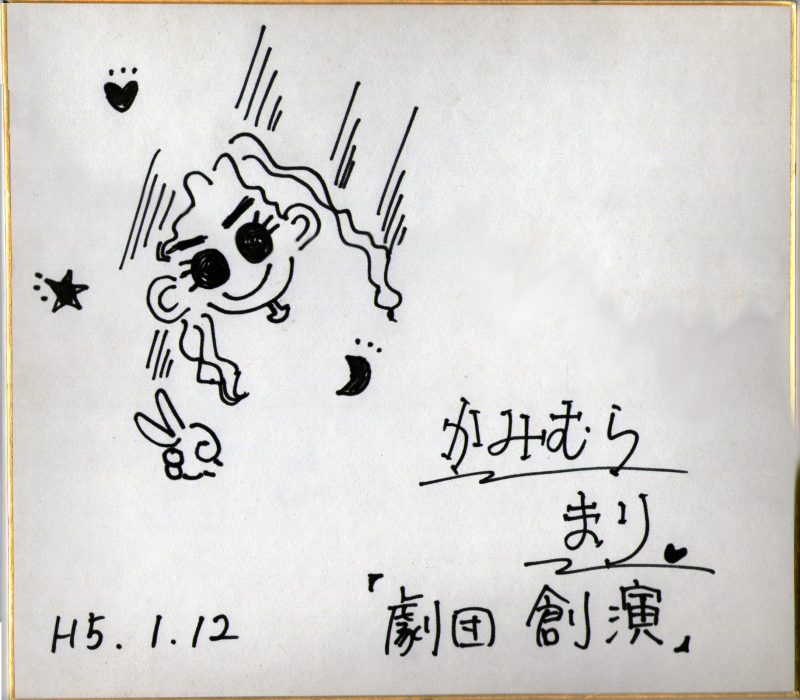 かみむら
まり
『劇団 創演』
H5.1.12